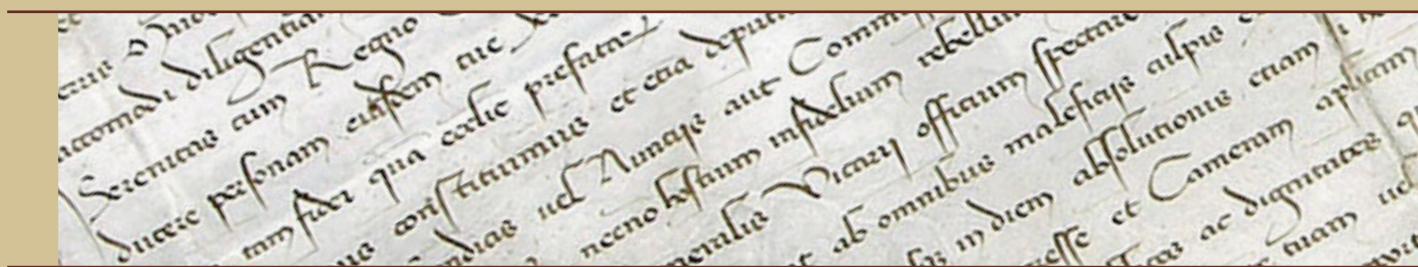 diligentia
Serenitas cum Regio
ducere personam eiusdem tue
tam fidei qua ecclie prefatar
us constituimus et etia deputa
ndias uel Nuncijs aut Comm
necno hostium infidelium rebelliu
neralis Vicarij officium spectare
t ab omnibus maleficijs culpis
in diem absolutionis etiam
esse et Cameram aplicam
ac dignitates
tuam uel